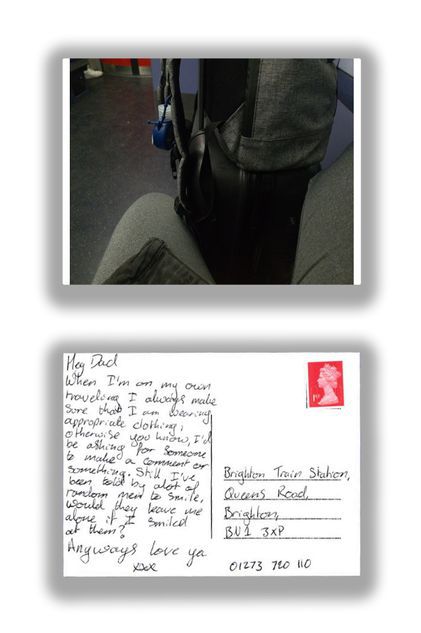 Hey Dad
When I'm on my own
traveling I always make
sure that I am wearing
appropriate clothing,
otherwise you know, I'd
be asking for someone
to make a comment or
something. Still I've
been told by alot of
random men to smile,
would they leave me
alone if I smiled
at them?
Anyways love ya
xxx
1st
Brighton Train Station,
Queens Road,
Brighton,
BN1 3XP
01273 720 110